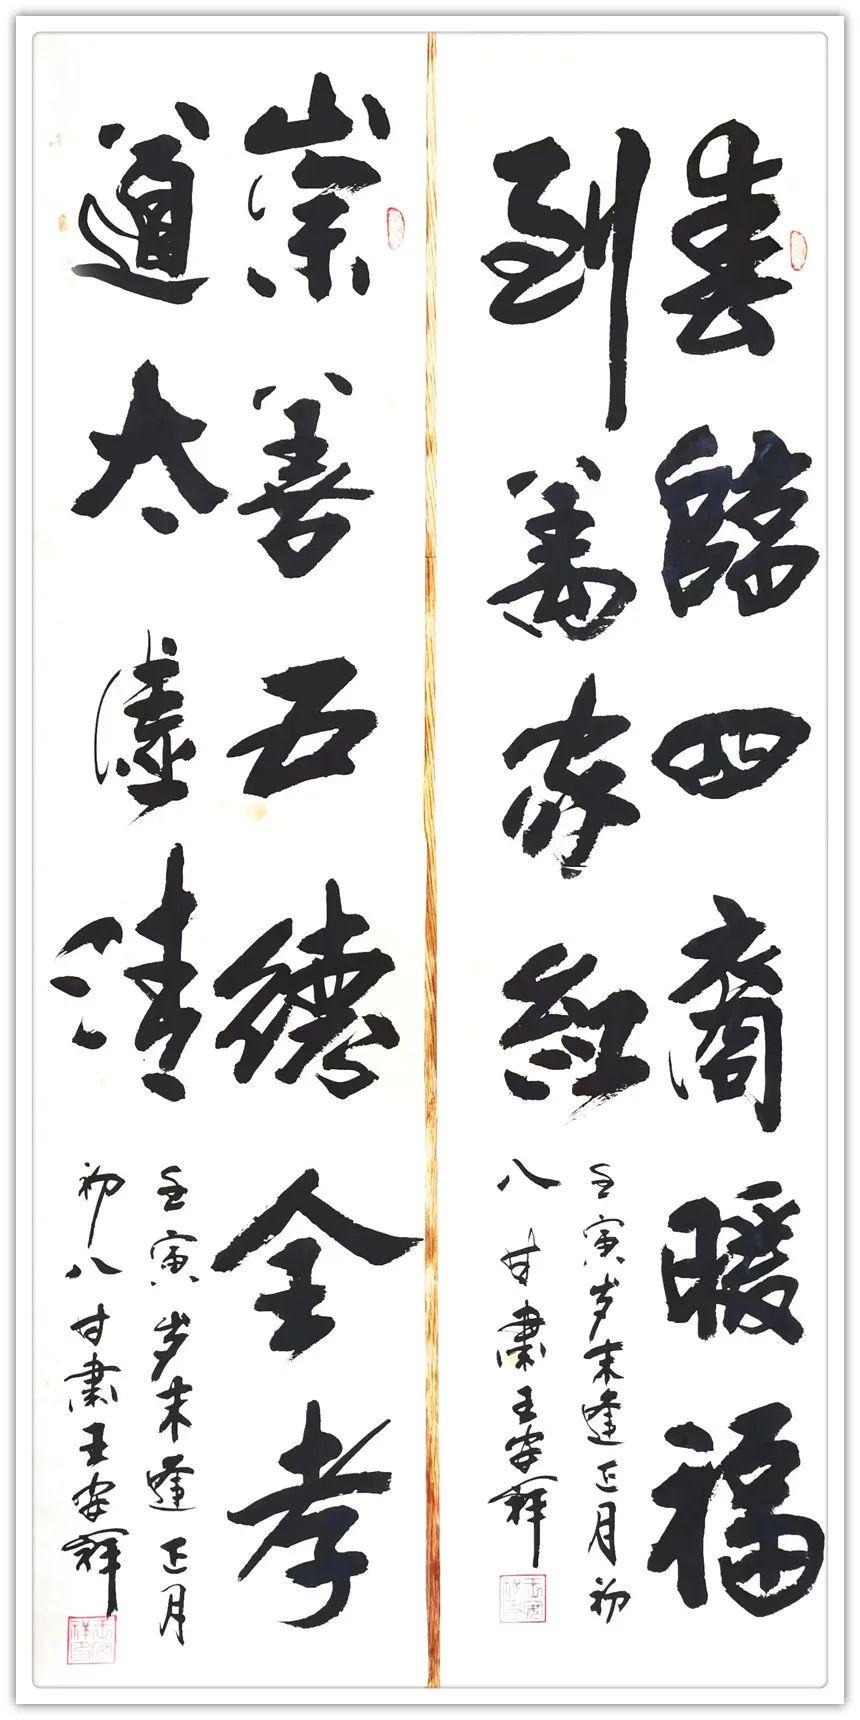 春臨四裔暖福
到萬家紅
壬寅岁末逢正月初
八甘肅王安祥
崇善五德全孝
道太虚清
壬寅岁末逢正月
初八甘肅王安祥